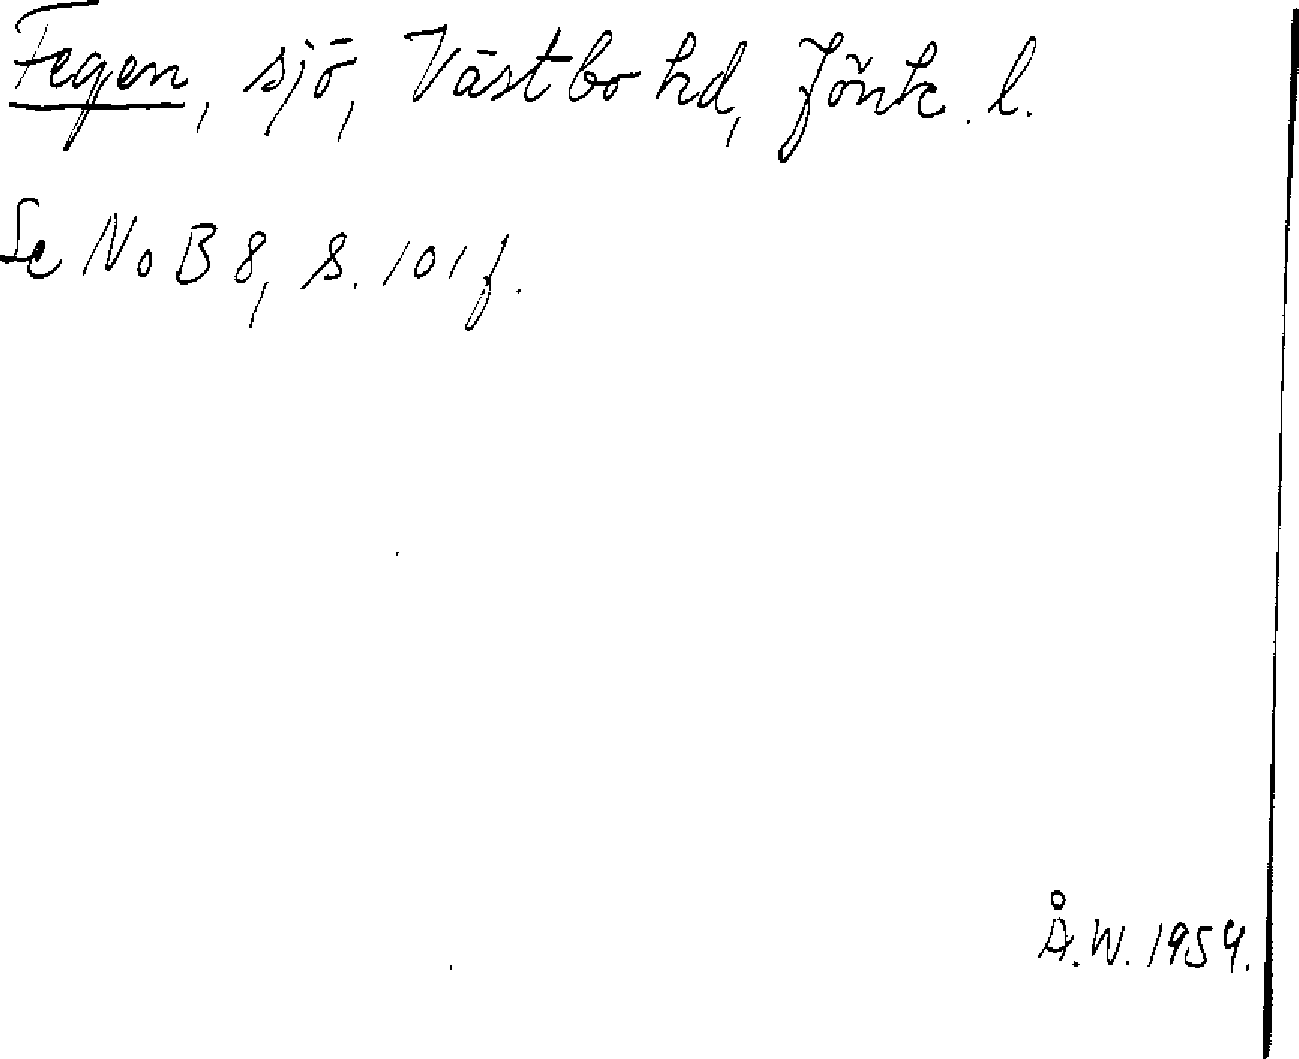 Fegen, sjö, Västbo hd, Jönk. l.
Se NoB 8, s. 101 f.
Å.W. 1954.